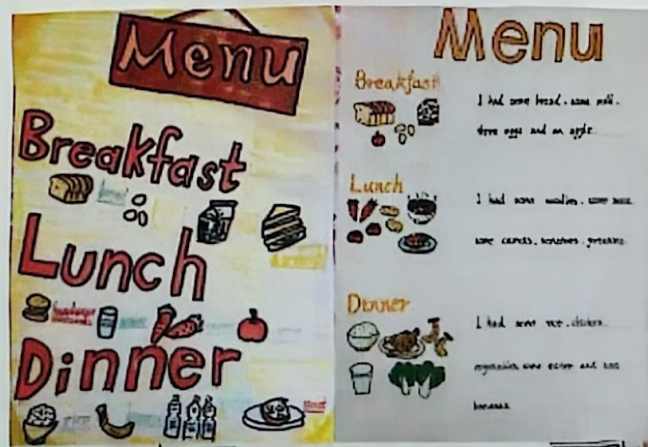 Menu
Breakfast
Lunch
Dinner
Menu
Breakfast
I had some bread, some milk,
three eggs and an apple.
Lunch
I had some noodles, some
some carrots, tomatoes, potatoes.
Dinner
I had some rice, chicken,
vegetables, some water and two
bananas.